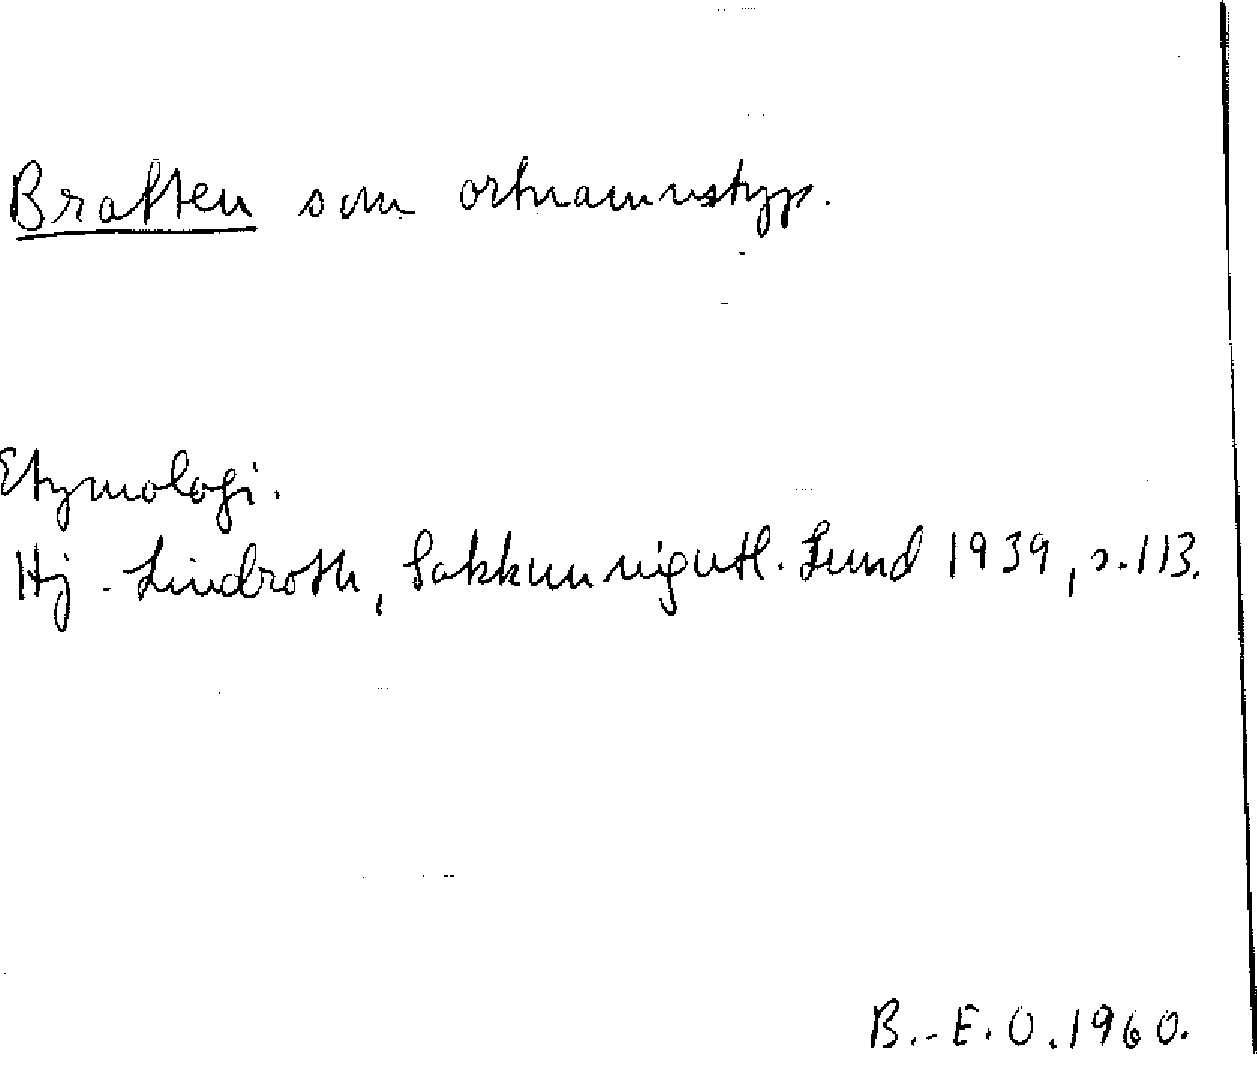 Bratten som ortnamnstyp.
Etymologi.
Hj. Lindroth, Sakkunnigutl. Lund 1939, s. 113.
B.-E. O. 1960.